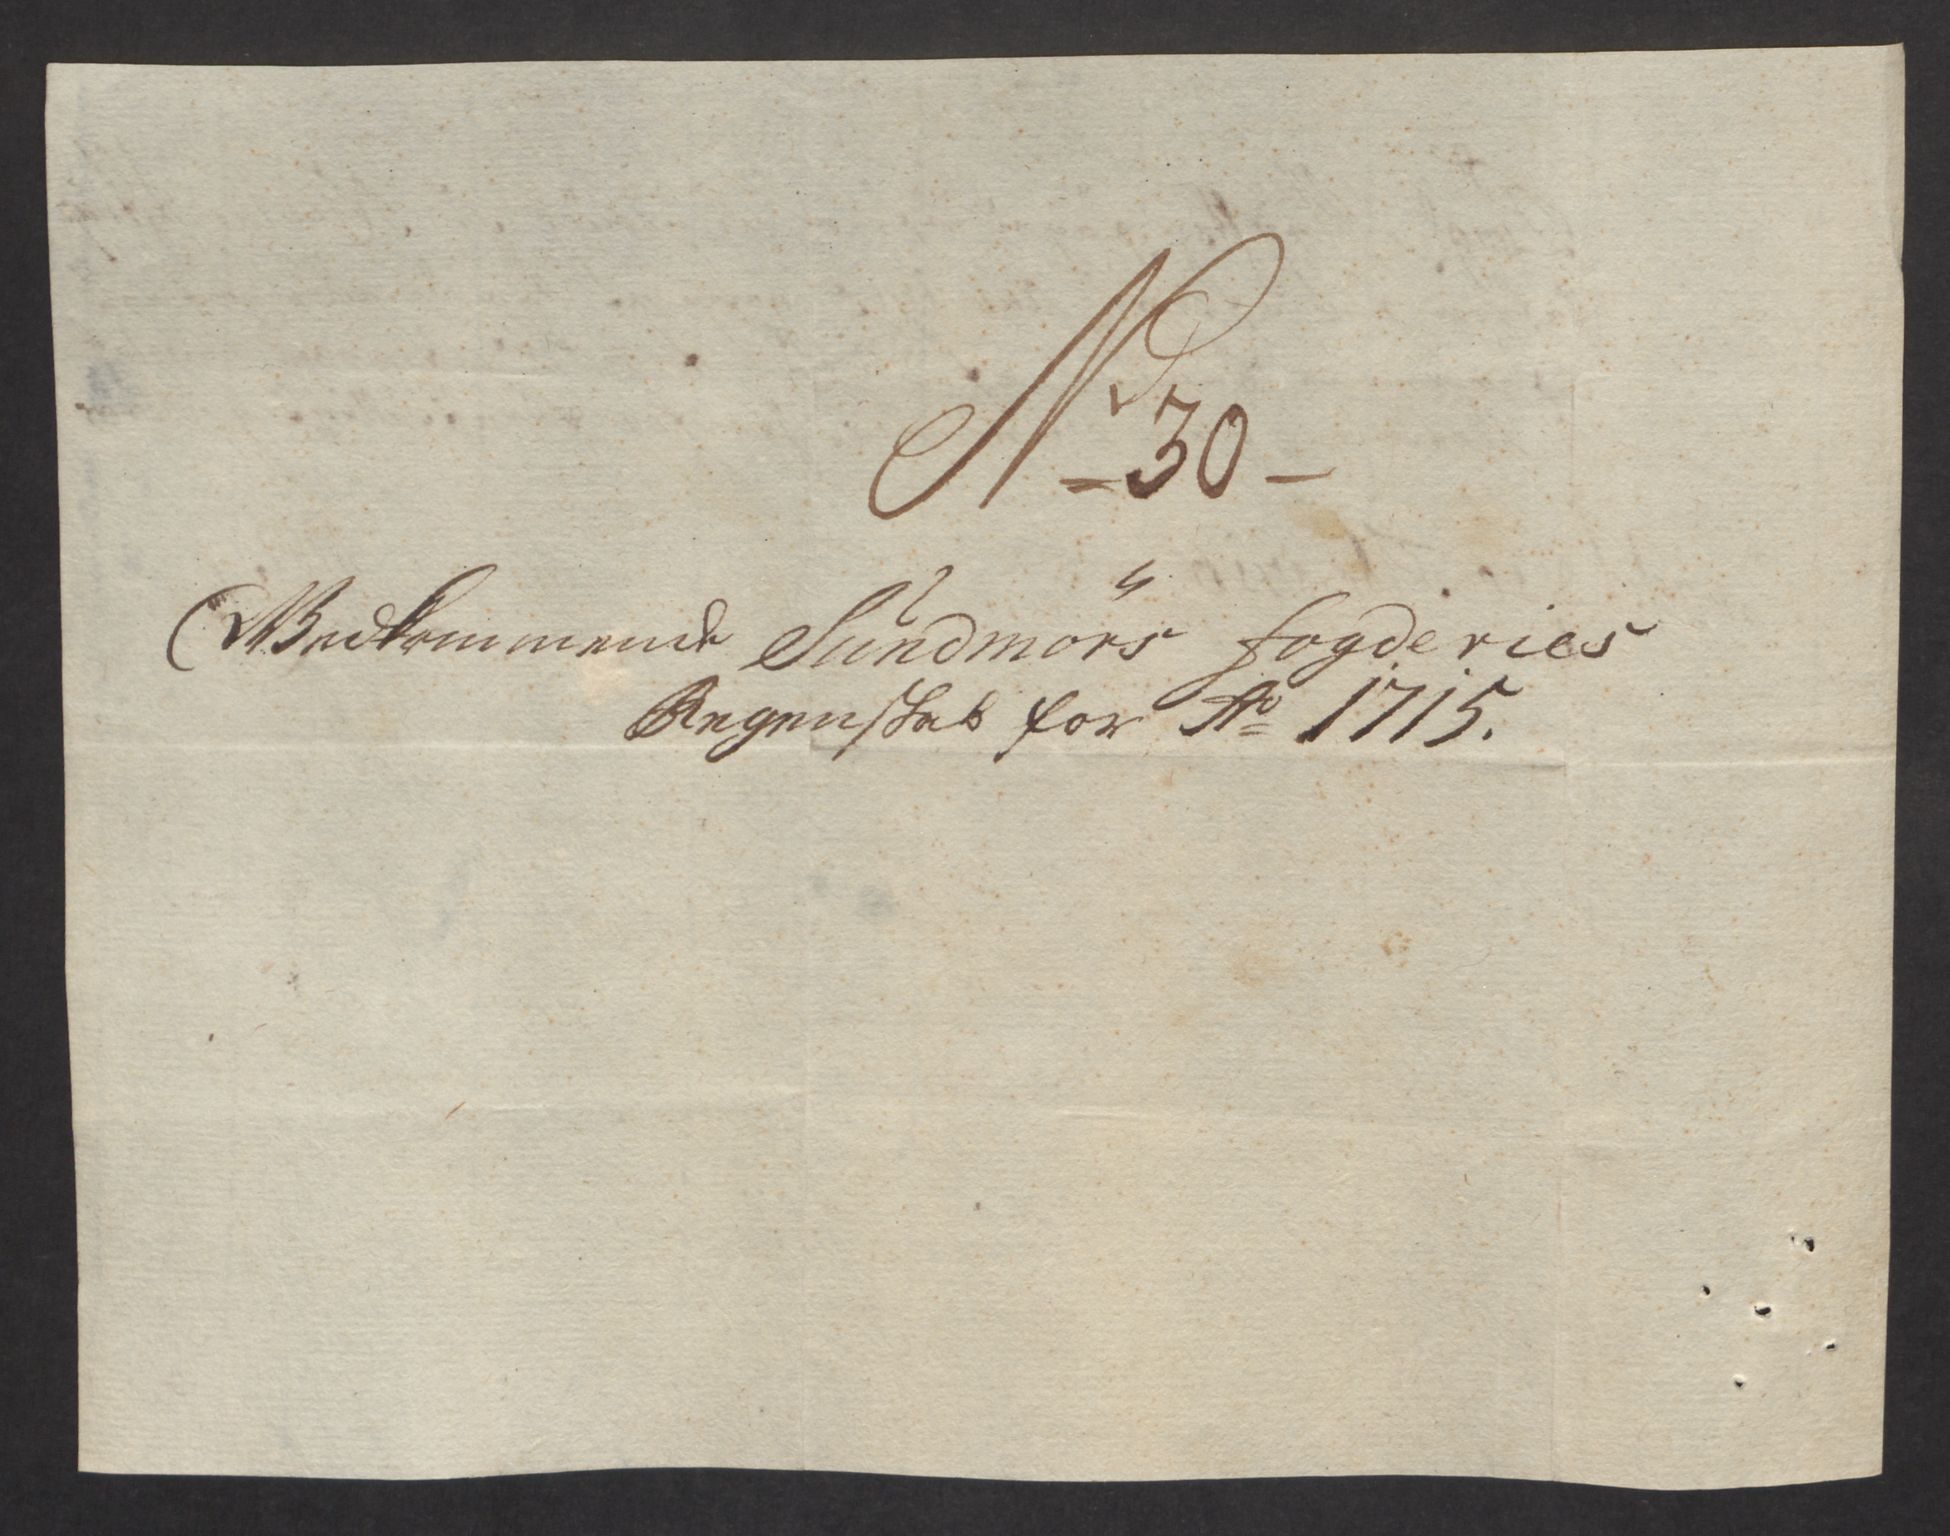 No 30
Vedkommende Sundmörs fogderies
Regenskab for Ao 1715.